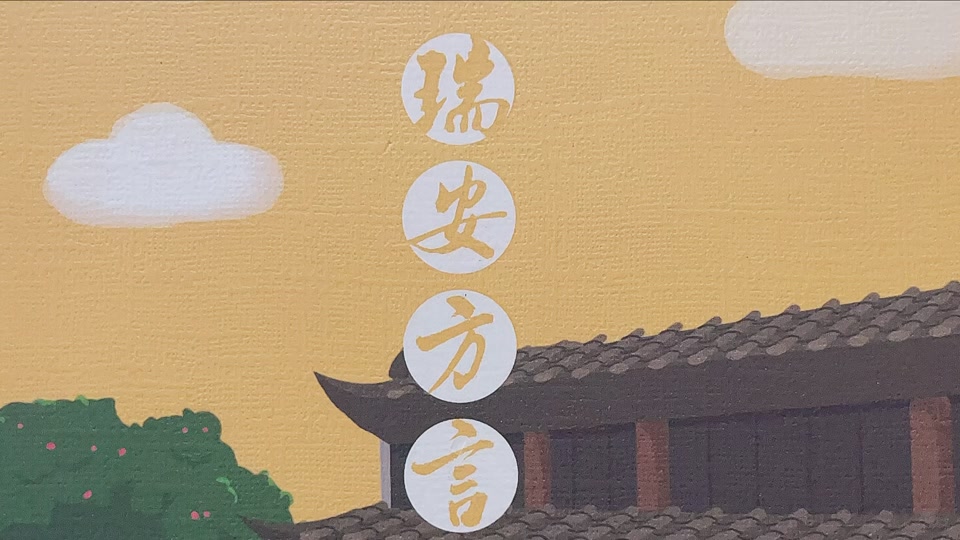 瑞安方言